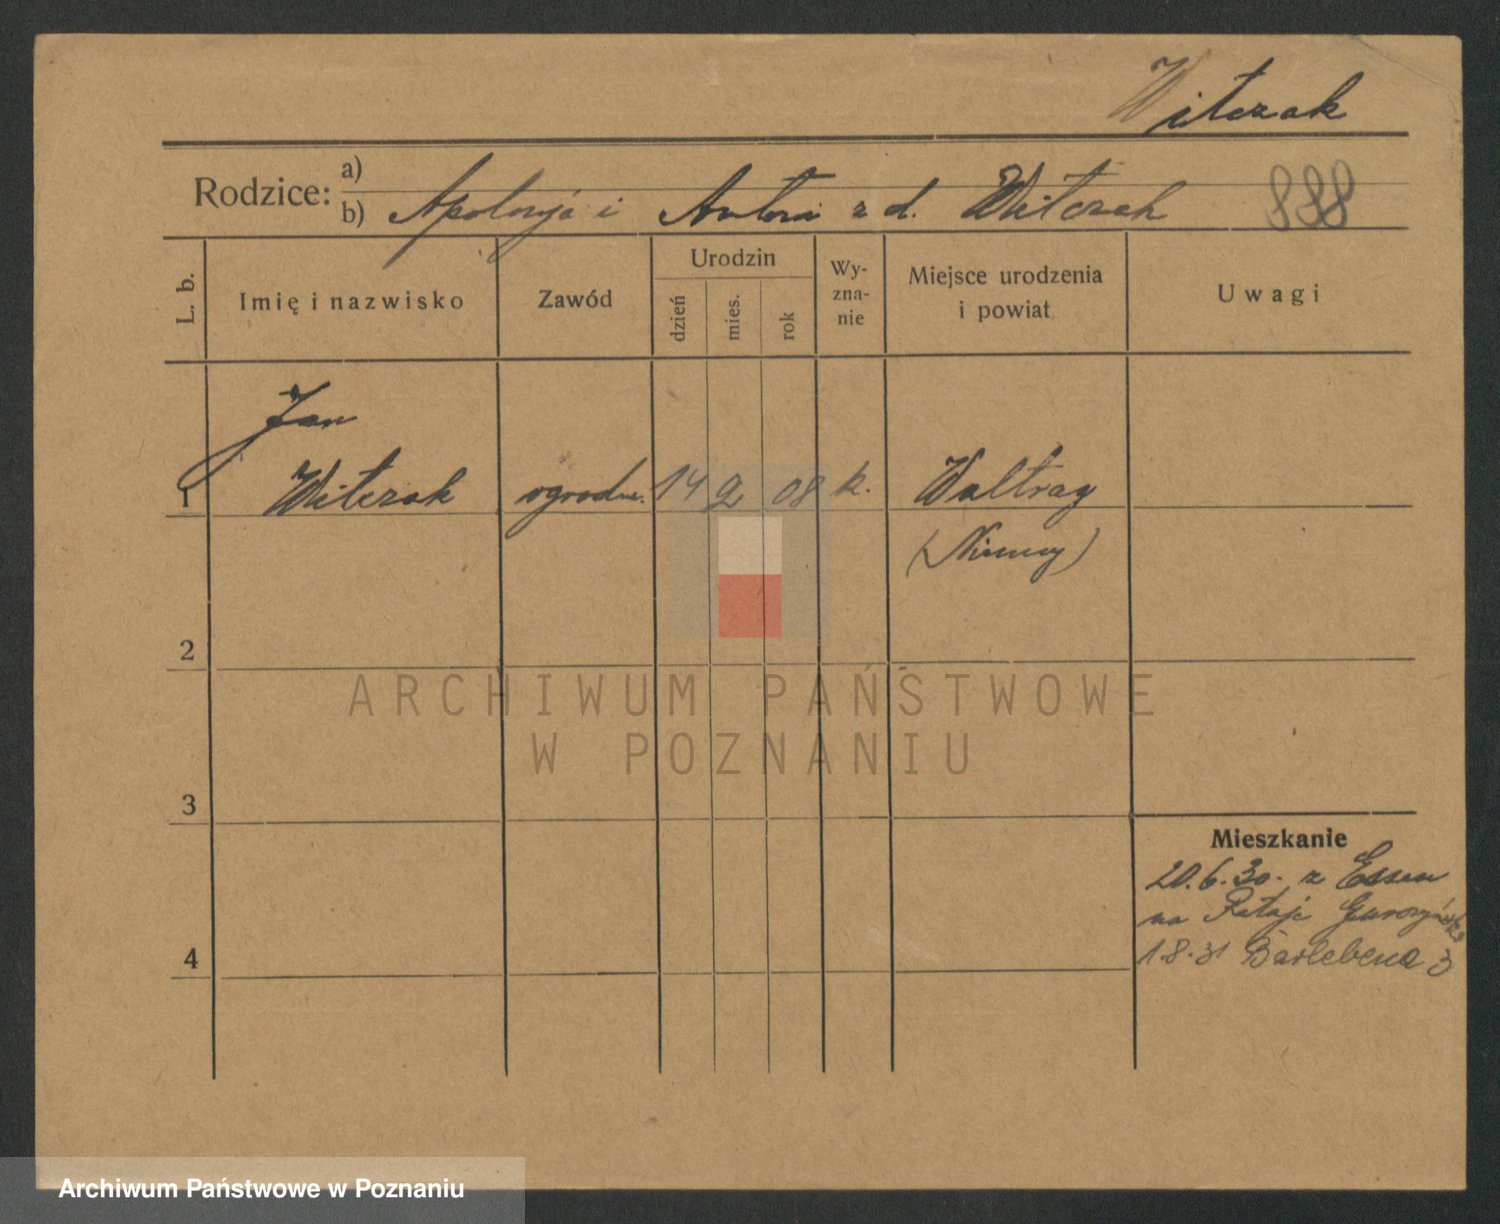 Witczak
Rodzice: a)
b) Apolonja i Antoni z d. Witczak 888
L. b.
Imię i nazwisko
Zawód
Urodzin
dzień
mies.
rok
Wy-
zna-
nie
Miejsce urodzenia
i powiat
Uwagi
Jan
1 Witczak ogrodn. 14 2 08 k. Waltrag
(Niemcy)
2
ARCHIWUM PAŃSTWOWE
W POZNANIU
3
Mieszkanie
20.6.30. z Essen
na Rataje
4 1.8.31 Barlebena 3
Archiwum Państwowe w Poznaniu